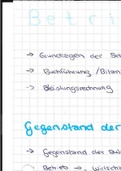 Betri
→ Grundlagen der Be
→ Buchführung / Bilan
→ Leistungsrechnung
Gegenstand der
→ Gegenstand der
→ Betrieb → Wirtsch